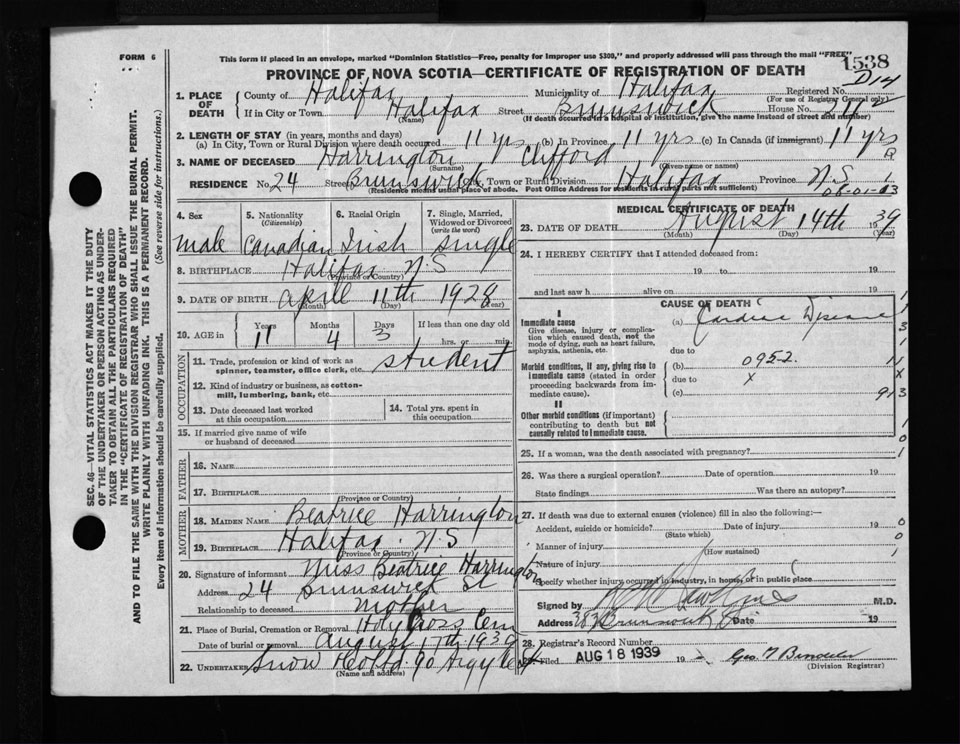 FORM 6
This form if placed in an envelope, marked "Dominion Statistics—Free, penalty for improper use $300," and properly addressed will pass through the mail "FREE"
1538
D14
PROVINCE OF NOVA SCOTIA—CERTIFICATE OF REGISTRATION OF DEATH
1. PLACE OF DEATH County of Halifax Municipality of Halifax Registered No.
(For use of Registrar General only)
If in City or Town Halifax Street Brunswick House No.
(Name) (If death occurred in a hospital or institution, give the name instead of street and number)
2. LENGTH OF STAY (in years, months and days)
(a) In City, Town or Rural Division where death occurred 11 yrs (b) In Province 11 yrs (c) In Canada (if immigrant) 11 yrs
3. NAME OF DECEASED Harrington Clifford
(Surname) (Given name or names)
RESIDENCE No. 24 Street Brunswick City, Town or Rural Division Halifax Province N.S
(Residence means usual place of abode. Post Office Address for residents in rural parts not sufficient)
4. Sex
male
5. Nationality
(Citizenship)
Canadian
6. Racial Origin
Irish
7. Single, Married, Widowed or Divorced
(write the word)
single
8. BIRTHPLACE Halifax N.S
(Province or Country)
9. DATE OF BIRTH April 11th 1928
(Month) (Day) (Year)
10. AGE in Years Months Days If less than one day old
11 4 3 hrs. or min.
OCCUPATION
11. Trade, profession or kind of work as spinner, teamster, office clerk, etc. student
12. Kind of industry or business, as cotton-mill, lumbering, bank, etc.
13. Date deceased last worked at this occupation
14. Total yrs. spent in this occupation
15. If married give name of wife or husband of deceased
FATHER
16. NAME
17. BIRTHPLACE
(Province or Country)
MOTHER
18. MAIDEN NAME Beatrice Harrington
19. BIRTHPLACE Halifax N.S
(Province or Country)
20. Signature of informant Miss Beatrice Harrington
Address 24 Brunswick St
Relationship to deceased mother
21. Place of Burial, Cremation or Removal Holy Cross Cem
Date of burial or removal August 17th 1939
22. UNDERTAKER Snow & Co Ltd 90 Argyle St
(Name and address)
MEDICAL CERTIFICATE OF DEATH
23. DATE OF DEATH August 14th 1939
(Month) (Day) (Year)
24. I HEREBY CERTIFY that I attended deceased from:
19 to 19
and last saw h alive on 19
CAUSE OF DEATH
I
Immediate cause
Give disease, injury or complication which caused death, not the mode of dying, such as heart failure, asphyxia, asthenia, etc.
(a) Cardiac Disease
due to
Morbid conditions, if any, giving rise to immediate cause (stated in order proceeding backwards from immediate cause).
(b) 095-2.
due to x
(c)
II
Other morbid conditions (if important) contributing to death but not causally related to immediate cause.
25. If a woman, was the death associated with pregnancy?
26. Was there a surgical operation? Date of operation 19
State findings Was there an autopsy?
27. If death was due to external causes (violence) fill in also the following:—
Accident, suicide or homicide? Date of injury 19
(State which)
Manner of injury
(How sustained)
Nature of injury
Specify whether injury occurred in industry, in home, or in public place
Signed by M.D.
Address Brunswick St Date 19
28. Registrar's Record Number
Filed AUG 18 1939 19 Geo. T
(Division Registrar)
SEC. 46—VITAL STATISTICS ACT MAKES IT THE DUTY
OF THE UNDERTAKER OR PERSON ACTING AS UNDERTAKER TO OBTAIN ALL THE PARTICULARS REQUIRED
IN THE "CERTIFICATE OF REGISTRATION OF DEATH"
AND TO FILE THE SAME WITH THE DIVISION REGISTRAR WHO SHALL ISSUE THE BURIAL PERMIT.
WRITE PLAINLY WITH UNFADING INK. THIS IS A PERMANENT RECORD.
Every item of information should be carefully supplied. (See reverse side for instructions.)